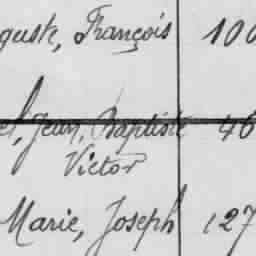 guste, François 100
el, Jean, Baptiste 46
Victor
Marie, Joseph 127